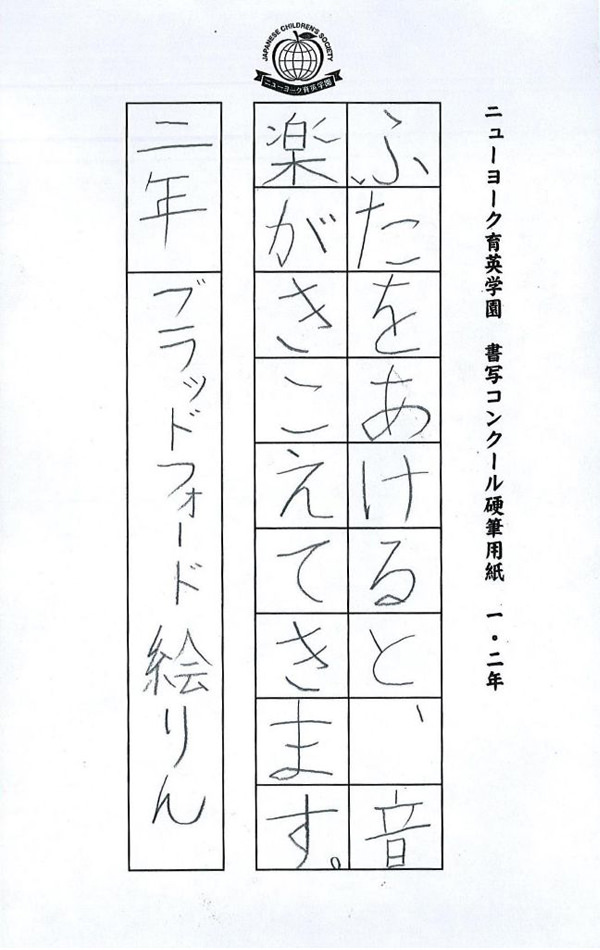 JAPANESE CHILDREN'S SOCIETY
ニューヨーク育英学園
ニューヨーク育英学園 書写コンクール硬筆用紙 一・二年
ふたをあけると、音
楽がきこえてきます。
二年 ブラッドフォード 絵りん